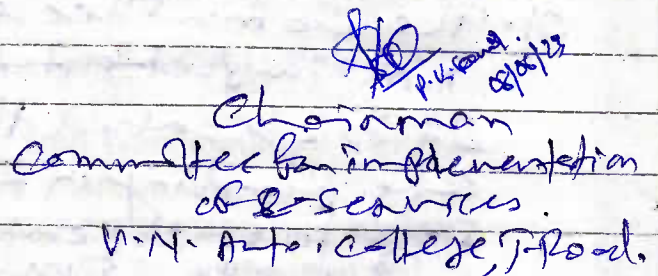 P.K.
08/06/23
Chairman
Committee for implementation
of E-Services.
V.N. Auto. College, J-Road.